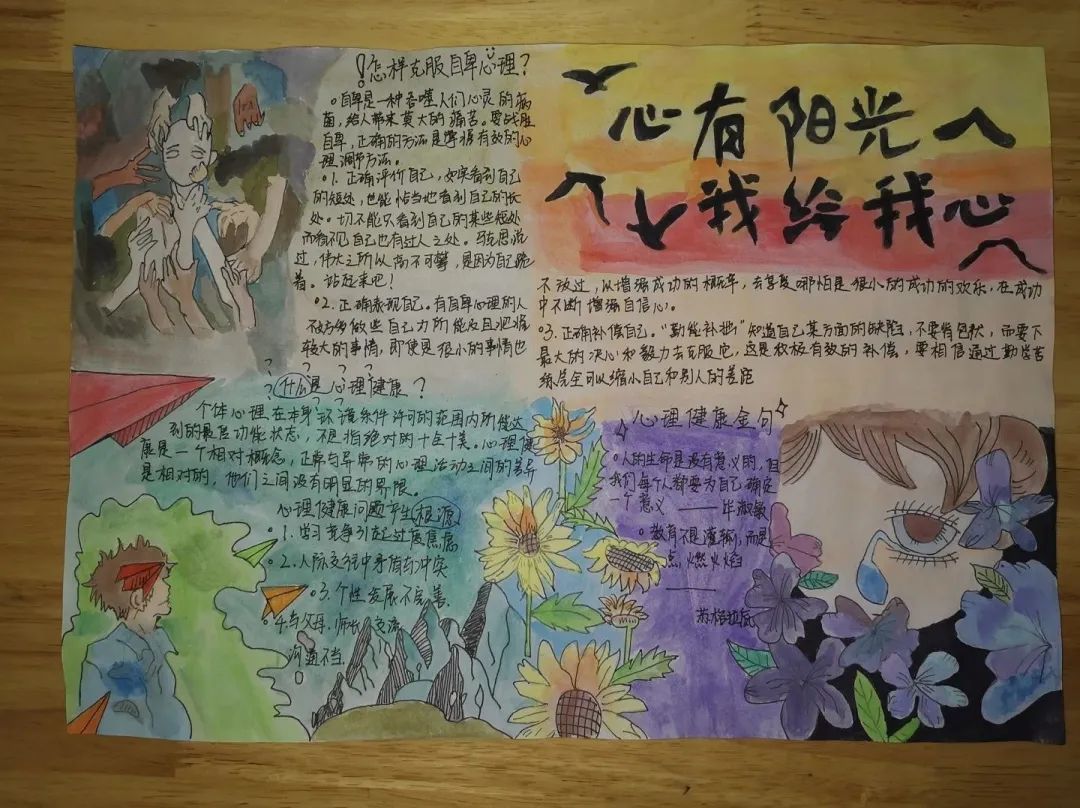 心有阳光
我给我心
怎样克服自卑心理?
自卑是一种吞噬人们心灵的病
菌,给人带来莫大的痛苦。要战胜
自卑,正确的方法是掌握有效的心
理调节方法。
1. 正确评价自己,如实看到自己
的短处,也能恰当地看到自己的长
处。切不能只看到自己的某些短处
而看不见自己也有过人之处。马克思说
过,伟大之所以高不可攀,是因为自己跪
着。站起来吧!
2. 正确表现自己。有自卑心理的人
不妨多做些自己力所能及且把握
较大的事情,即使是很小的事情也
不放过,从增强成功的概率,去享受哪怕是很小的成功的欢乐,在成功
中不断增强自信心。
3. 正确补偿自己。“勤能补拙”知道自己某方面的缺陷,不要背包袱,而要下
最大的决心和毅力去克服它,这是积极有效的补偿,要相信通过勤学苦
练完全可以缩小自己和别人的差距
什么是心理健康?
个体心理在本身环境条件许可的范围内所能达
到的最佳功能状态,不是指绝对的十全十美。心理健
康是一个相对概念,正常与异常的心理活动之间的差异
是相对的,他们之间没有明显的界限。
心理健康问题产生根源
1. 学习竞争引起过度焦虑
2. 人际交往中矛盾和冲突
3. 个性发展不完善
4. 与父母、师长交流
沟通不当.
心理健康金句
人的生命是没有意义的,但
我们每个人都要为自己确定
一个意义 ——毕淑敏
教育不是灌输,而是
点燃火焰
——
苏格拉底